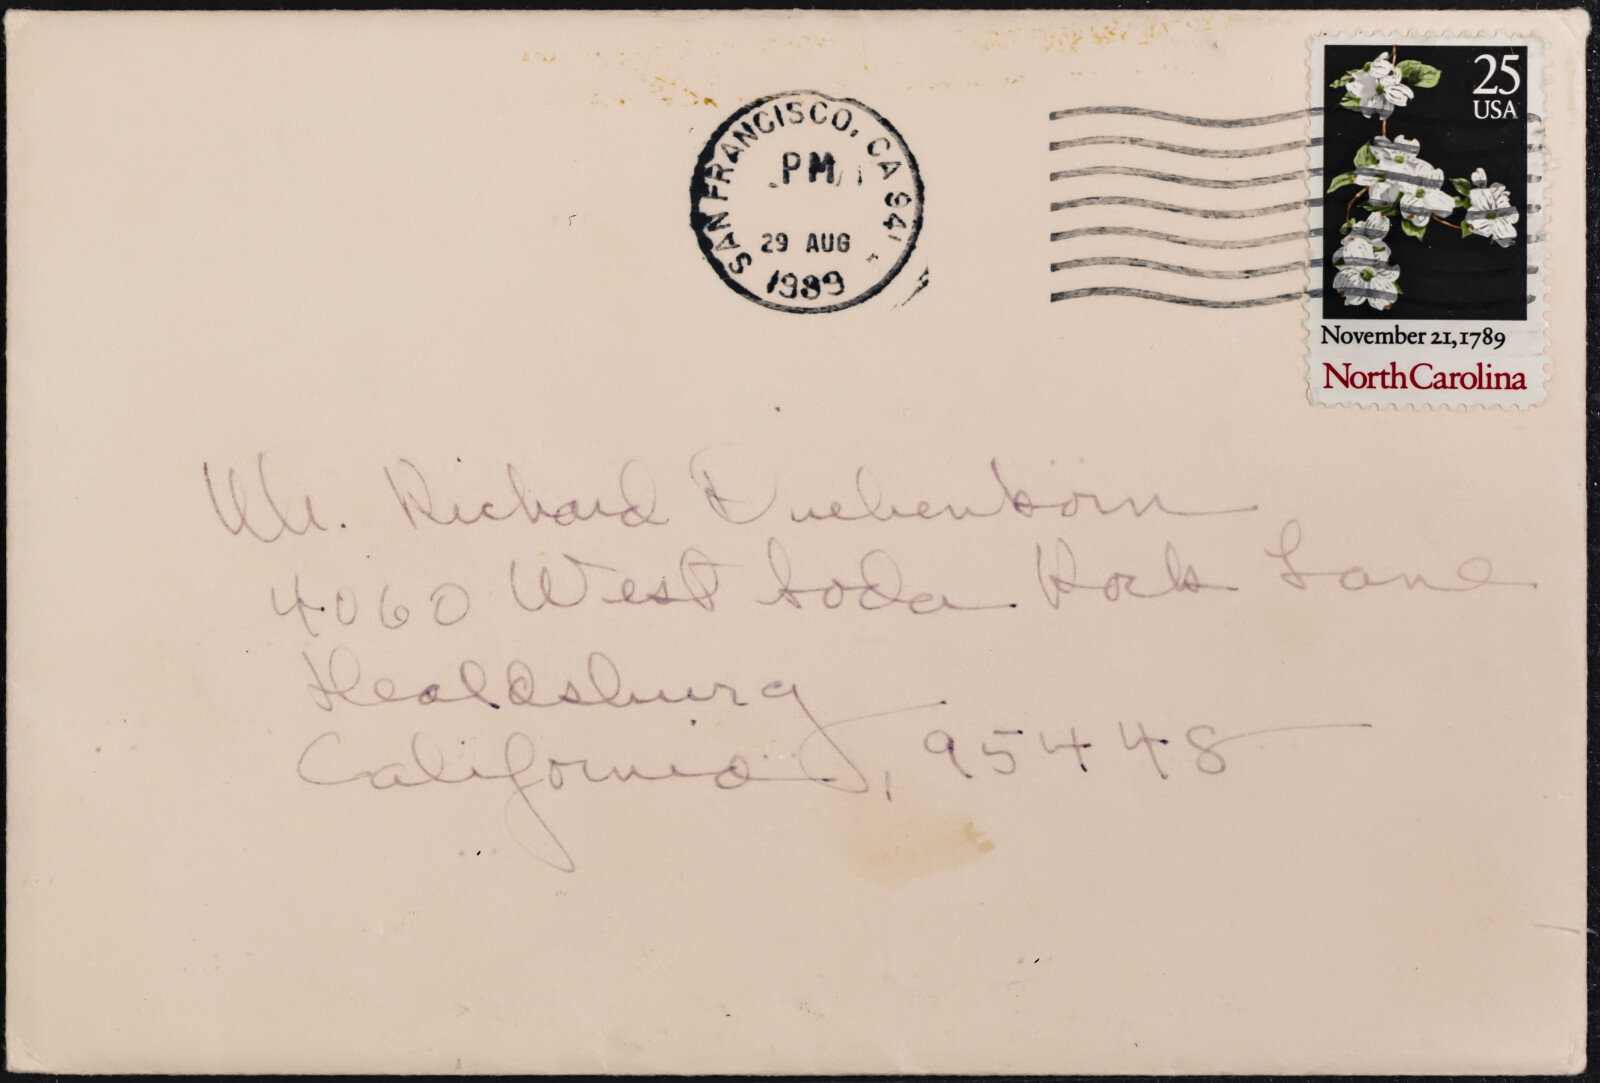 SAN FRANCISCO, CA 941
PM
29 AUG
1989
25
USA
November 21, 1789
North Carolina
Mr. Richard Diebenkorn
4060 West Soda Rock Lane
Healdsburg
California, 95448